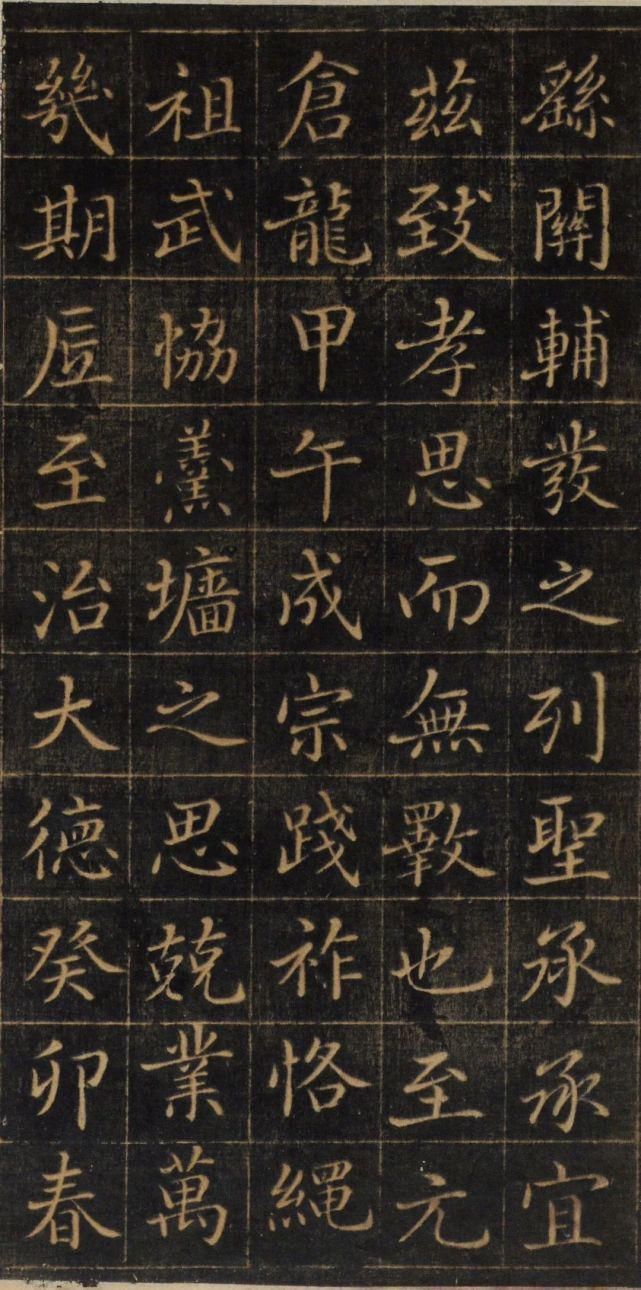 繇關輔發之列聖承承宜
茲致孝思而無斁也至元
倉龍甲午成宗踐祚恪繩
祖武恊羹墻之思兢業萬
幾期底至治大德癸卯春